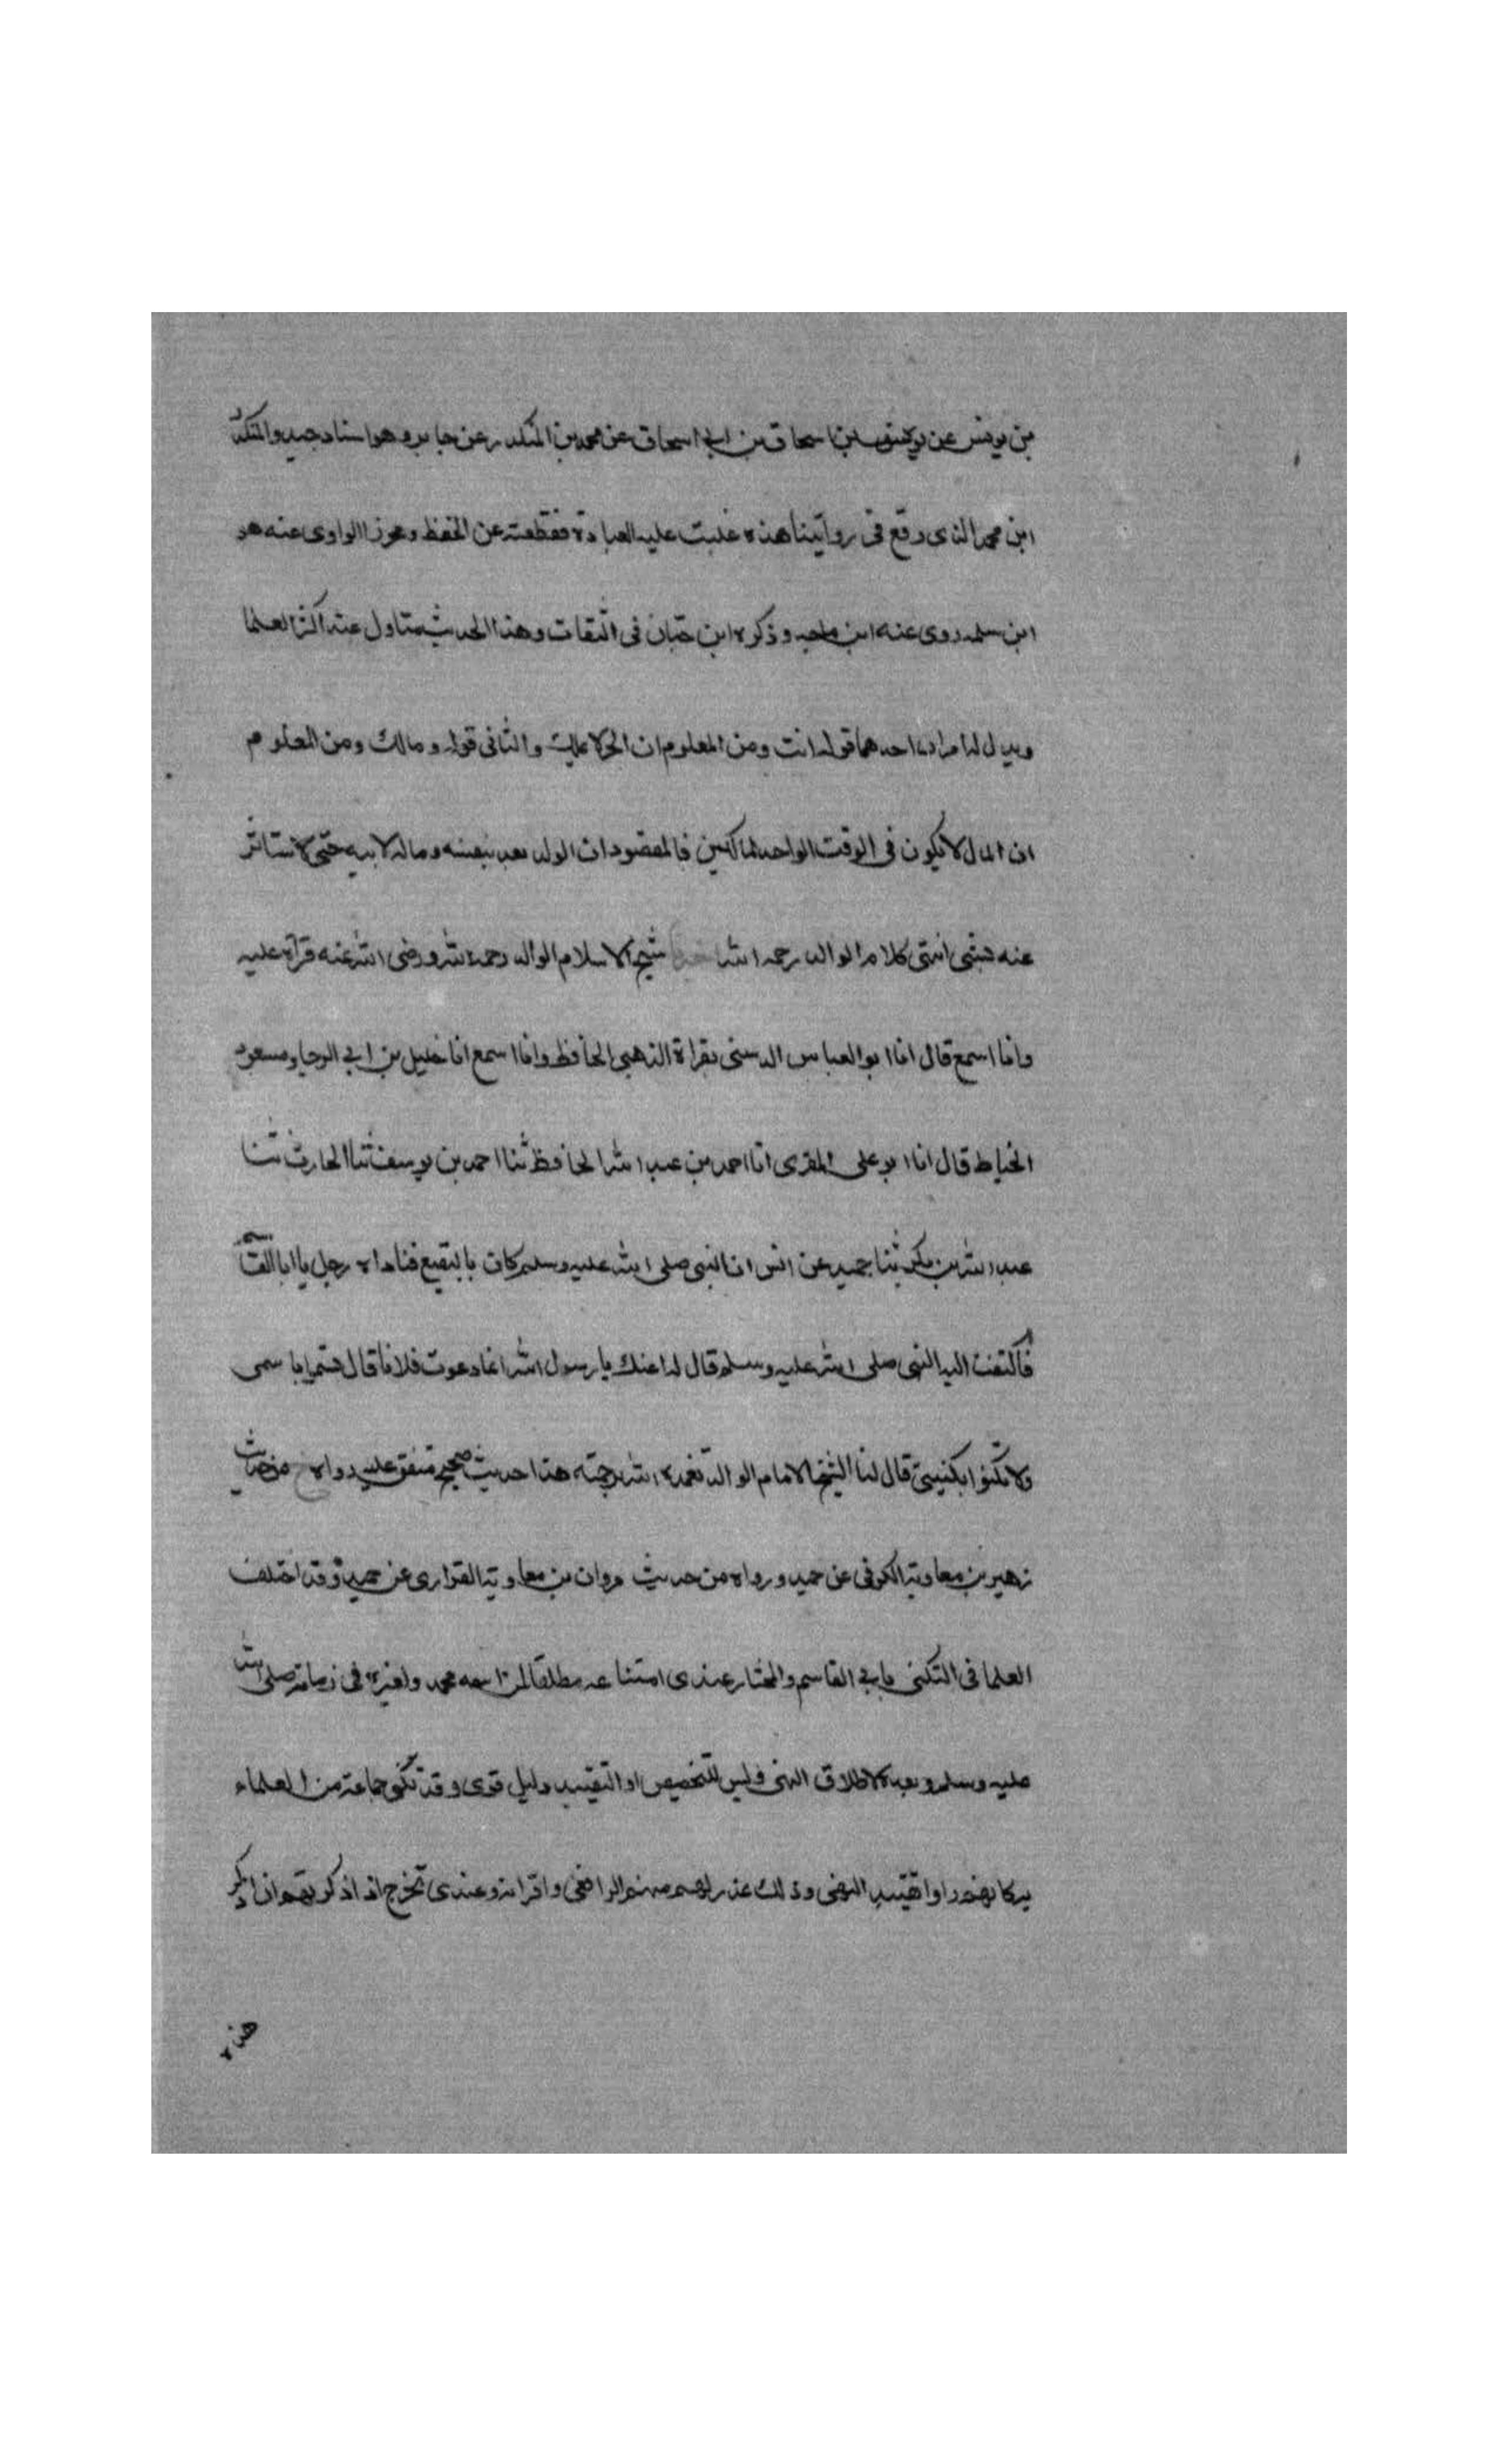 بن يونس عن يوسف بن اسحاق بن ابي اسحاق عن محمد بن المنكدر عن جابر وهو اسناد جيد والمنكدر
ابن محمد الذى وقع فى روايتنا هذه غلبت عليه العبادة فقطعته عن الحفظ و الراوى عنه هو
ابن سلمه روى عنه ابن ماجه وذكره ابن حبان فى الثقات وهذا الحديث متاول عند اكثر العلما
ويدل له امران احدهما قوله انت ومن المعلوم ان الحر لا يملك والثانى قوله ومالك ومن المعلوم
ان المال لا يكون فى الوقت الواحد لمالكين فالمقصود ان الولد يعد بنفسه وماله لابيه حتى لا يستاثر
عنه بشى انتهى كلام الوالد رحمه الله شيخ الاسلام الوالد رحمه الله ورضى الله عنه قرآة عليه
وانا اسمع قال انا ابو العباس الدشتى بقراة الذهبى الحافظ وانا اسمع انا خليل بن ابي الرجا ومسعود
الخياط قال انا ابو على المقرى انا احمد بن عبد الله الحافظ ثنا احمد بن يوسف ثنا الحارث ثنا
عبد الله بن بكر ثنا حميد عن انس ان النبى صلى الله عليه وسلم كان بالبقيع فناداه رجل يا ابا القاسم
فالتفت اليه النبى صلى الله عليه وسلم قال لم اعنك يا رسول الله انما دعوت فلانا قال تسموا باسمى
ولا تكنوا بكنيتى قال لنا الشيخ الامام الوالد تغمده الله برحمته هذا حديث صحيح متفق عليه رواه خ من حديث
زهير بن معاوية الكوفى عن حميد ورواه من حديث مروان بن معاوية الفزارى عن حميد وقد اختلف
العلما فى التكنى بابي القاسم والمختار عندى امتناعه مطلقا لمن اسمه محمد ولغيره فى زمانه صلى الله
عليه وسلم وبعده لاطلاق النهى وليس للتخصيص او التقييد دليل قوى وقد تكنى جماعة من العلماء
اما او تقييد النهى وذلك عذر لهم منهم الرافعى واقرانه وعندى تحرج اذا ذكرتهم ان اذكر